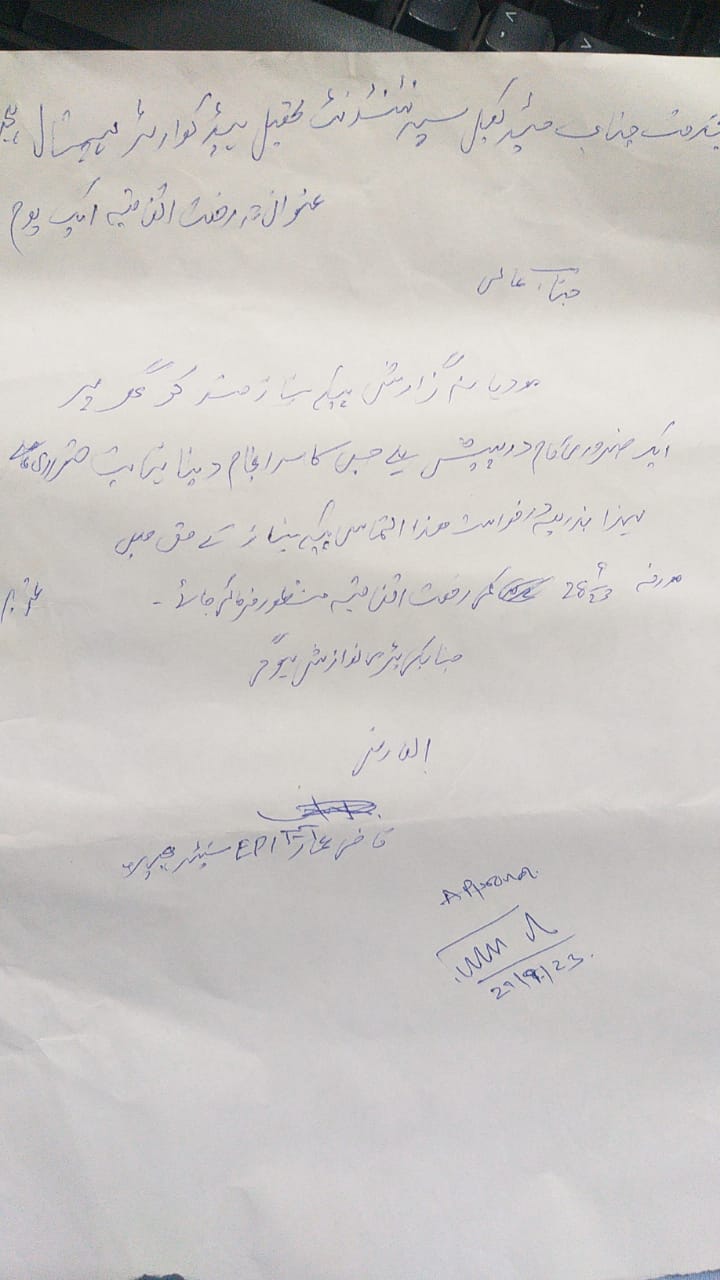 بخدمت جناب میڈیکل سپرنٹنڈنٹ تحصیل ہیڈ کوارٹر ہسپتال
عنوان: رخصت اتفاقیہ ایک یوم
جناب عالی
مودبانہ گزارش ہیکہ نیازمند کو گھر پر
ایک ضروری کام درپیش ہے جس کا سرانجام دینا نہایت ضروری ہے
لہذا بذریعہ درخواست ھذا التماس ہیکہ نیاز کے حق میں
مورخہ 28/9/23 کی رخصت اتفاقیہ منظور فرمائی جائے۔
جناب کی بڑی نوازش ہوگی
العارض
قاضی EPI سینٹر
Approved
29/9/23.